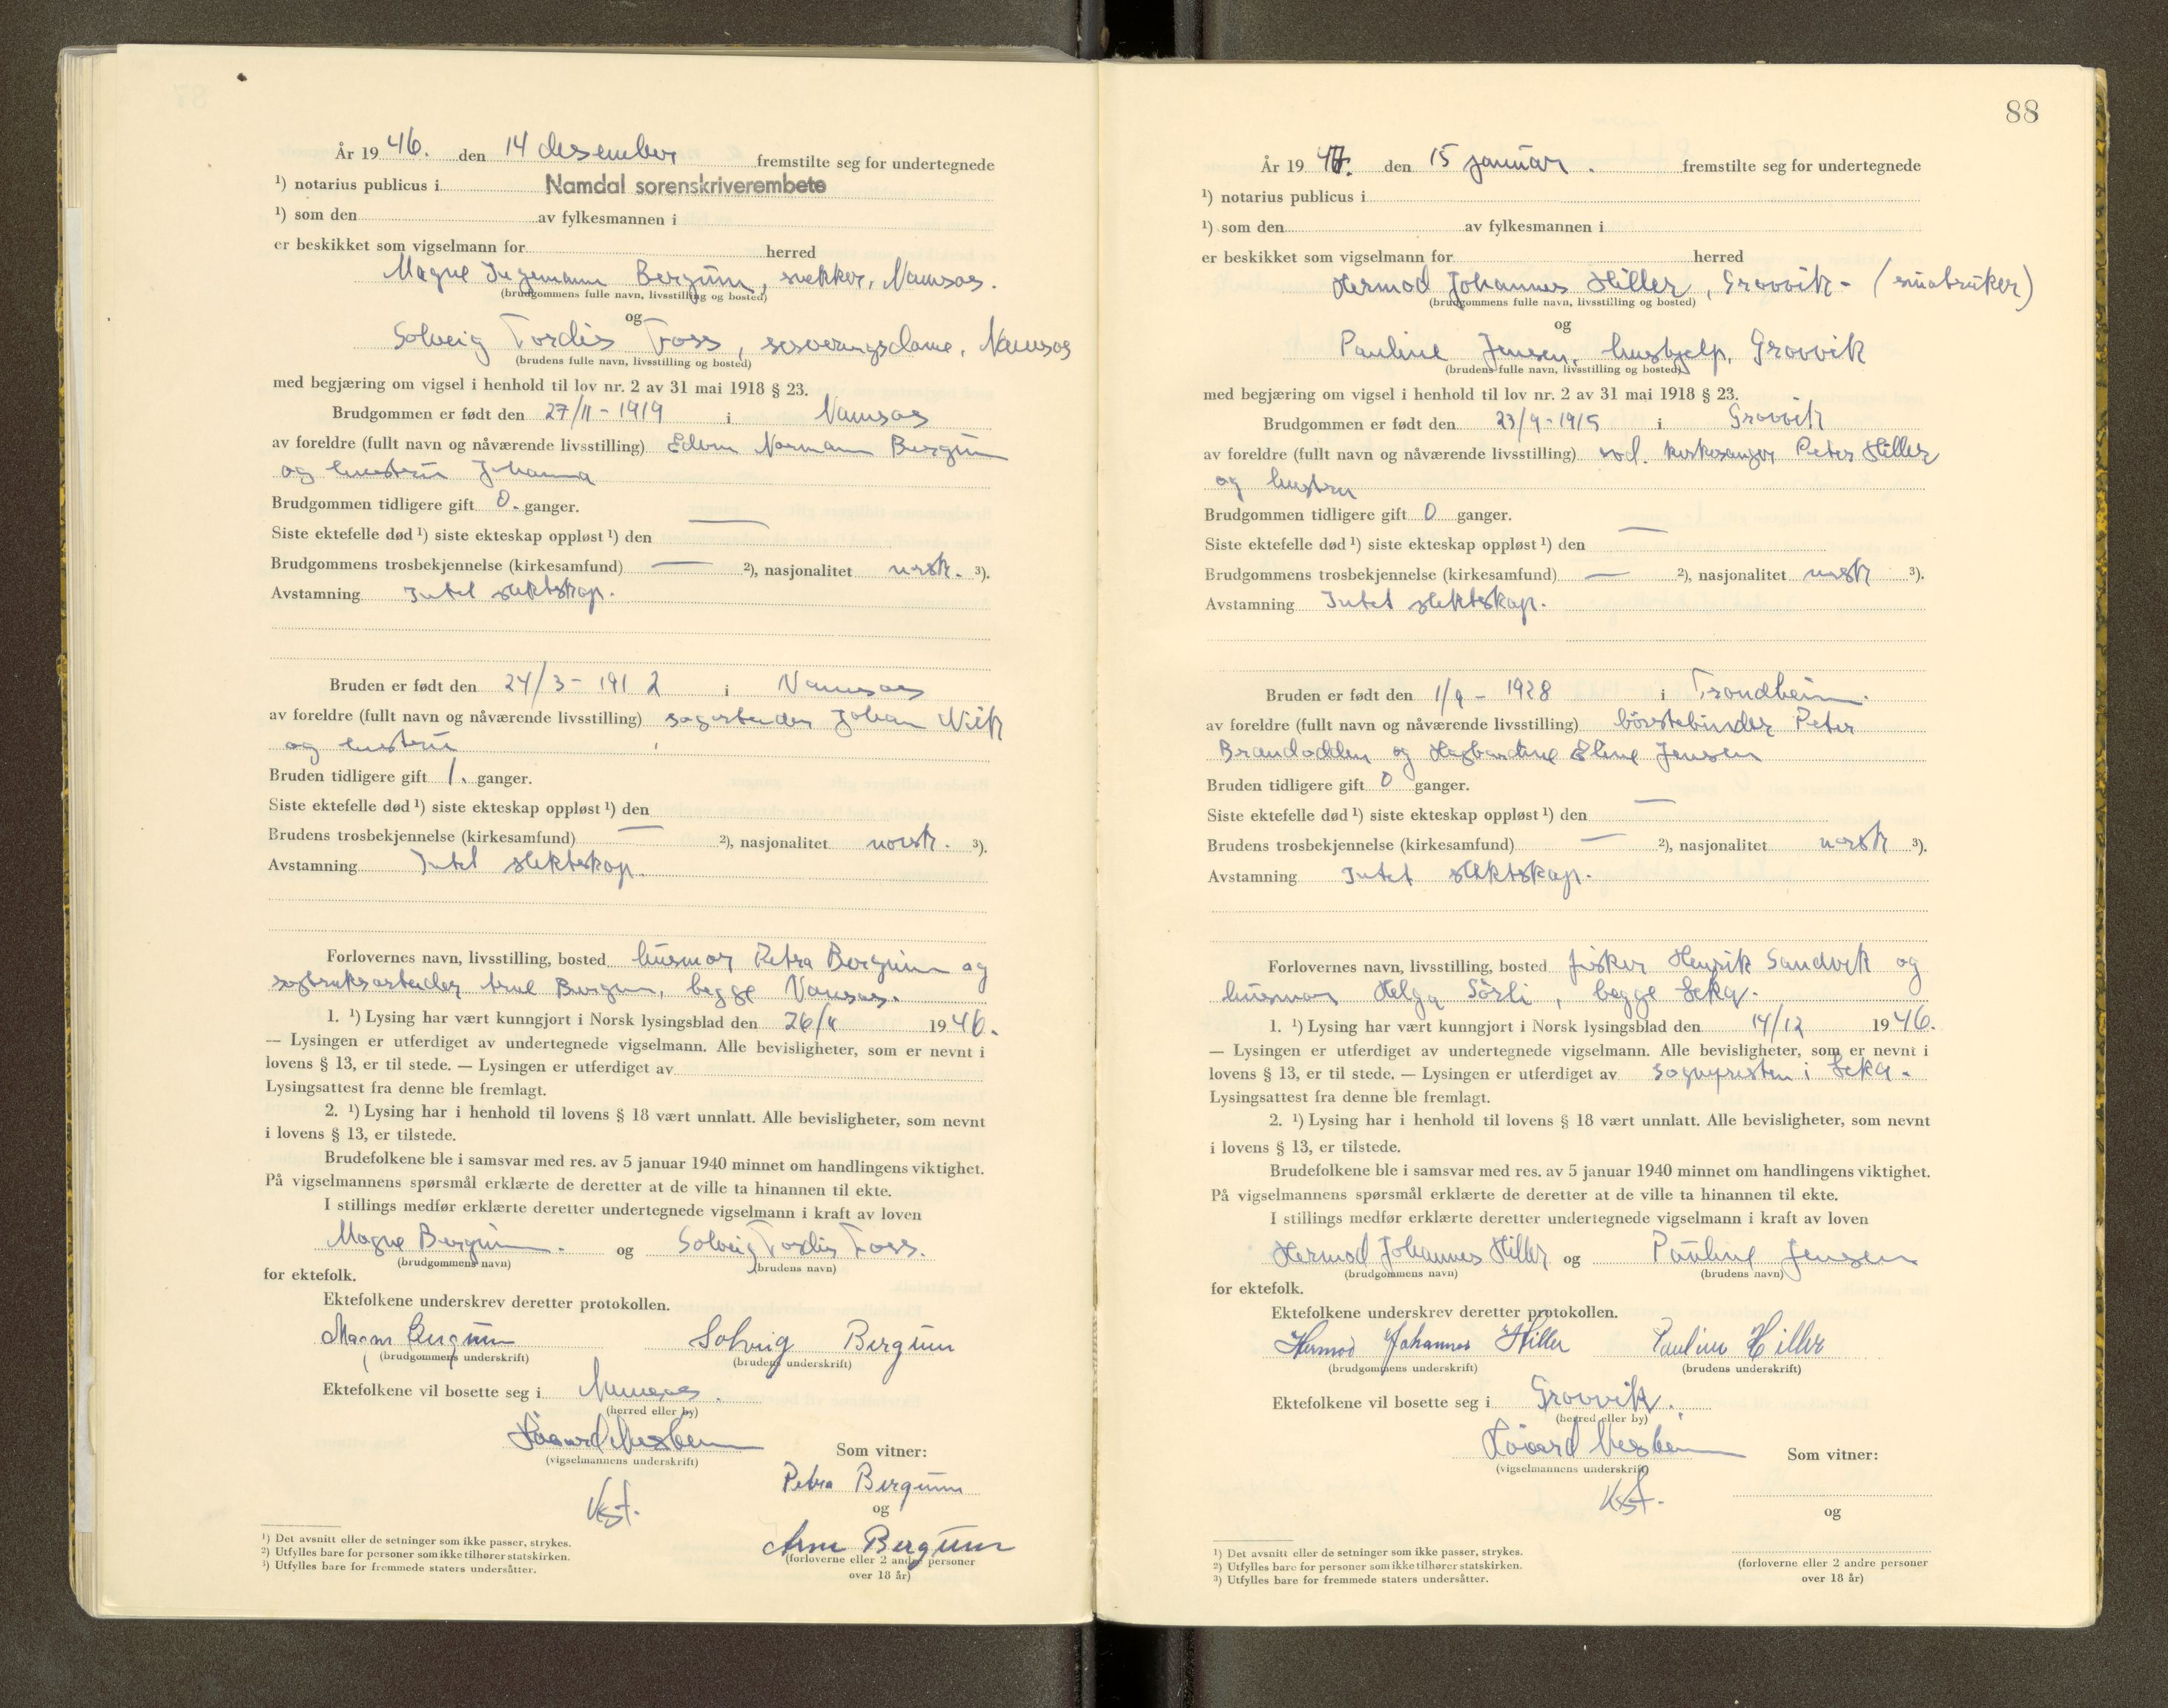 År 19 46. den 14 desember fremstilte seg for undertegnede
¹) notarius publicus i Namdal sorenskriverembete
¹) som den av fylkesmannen i
er beskikket som vigselmann for herred
Magne Ingemann Bergum, snekker, Namsos.
(brudgommens fulle navn, livsstilling og bosted)
og
Solveig Tordis Foss, serveringsdame, Namsos
(brudens fulle navn, livsstilling og bosted)
med begjæring om vigsel i henhold til lov nr. 2 av 31 mai 1918 § 23.
Brudgommen er født den 27/11 - 1919 i Namsos
av foreldre (fullt navn og nåværende livsstilling) Edvin Normann Bergum
og hustru Johanna
Brudgommen tidligere gift 0. ganger.
Siste ektefelle død ¹) siste ekteskap oppløst ¹) den —
Brudgommens trosbekjennelse (kirkesamfund) — ²), nasjonalitet norsk. ³).
Avstamning Intet slektskap.
Bruden er født den 24/3 - 1912 i Namsos
av foreldre (fullt navn og nåværende livsstilling) sagarbeider Johan Wiik
og hustru
Bruden tidligere gift 1. ganger.
Siste ektefelle død ¹) siste ekteskap oppløst ¹) den
Brudens trosbekjennelse (kirkesamfund) — ²), nasjonalitet norsk. ³).
Avstamning Intet slektskap.
Forlovernes navn, livsstilling, bosted husmor Petra Bergum og
Bergum, begge Namsos.
1. ¹) Lysing har vært kunngjort i Norsk lysingsblad den 26/11 1946.
— Lysingen er utferdiget av undertegnede vigselmann. Alle bevisligheter, som er nevnt i
lovens § 13, er til stede. — Lysingen er utferdiget av
Lysingsattest fra denne ble fremlagt.
2. ¹) Lysing har i henhold til lovens § 18 vært unnlatt. Alle bevisligheter, som nevnt
i lovens § 13, er tilstede.
Brudefolkene ble i samsvar med res. av 5 januar 1940 minnet om handlingens viktighet.
På vigselmannens spørsmål erklærte de deretter at de ville ta hinannen til ekte.
I stillings medfør erklærte deretter undertegnede vigselmann i kraft av loven
Magne Bergum. og Solveig Tordis Foss.
(brudgommens navn) (brudens navn)
for ektefolk.
Ektefolkene underskrev deretter protokollen.
Magne Bergum Solveig Bergum
(brudgommens underskrift) (brudens underskrift)
Ektefolkene vil bosette seg i Namsos.
(herred eller by)
Håvard Nesheim Som vitner:
(vigselmannens underskrift)
Petra Bergum
Kst. og
Arne Bergum
(forloverne eller 2 andre personer
over 18 år)
¹) Det avsnitt eller de setninger som ikke passer, strykes.
²) Utfylles bare for personer som ikke tilhører statskirken.
³) Utfylles bare for fremmede staters undersåtter.
88
År 19 47. den 15 januar. fremstilte seg for undertegnede
¹) notarius publicus i
¹) som den av fylkesmannen i
er beskikket som vigselmann for herred
Hermod Johannes Hiller, Gravvik - (småbruker)
(brudgommens fulle navn, livsstilling og bosted)
og
Pauline Jensen, hushjelp, Gravvik
(brudens fulle navn, livsstilling og bosted)
med begjæring om vigsel i henhold til lov nr. 2 av 31 mai 1918 § 23.
Brudgommen er født den 23/9 - 1915 i Gravvik
av foreldre (fullt navn og nåværende livsstilling) kirkesanger Peter Hiller
og hustru
Brudgommen tidligere gift 0 ganger.
Siste ektefelle død ¹) siste ekteskap oppløst ¹) den —
Brudgommens trosbekjennelse (kirkesamfund) — ²), nasjonalitet norsk ³).
Avstamning Intet slektskap.
Bruden er født den 1/9 - 1928 i Trondheim.
av foreldre (fullt navn og nåværende livsstilling) börstebinder Peter
Brandodden og Hagbardine Eline Jensen
Bruden tidligere gift 0 ganger.
Siste ektefelle død ¹) siste ekteskap oppløst ¹) den —
Brudens trosbekjennelse (kirkesamfund) — ²), nasjonalitet norsk ³).
Avstamning Intet slektskap.
Forlovernes navn, livsstilling, bosted fisker Henrik Sandvik og
husmor Helga Sörli, begge Leka.
1. ¹) Lysing har vært kunngjort i Norsk lysingsblad den 14/12 1946.
— Lysingen er utferdiget av undertegnede vigselmann. Alle bevisligheter, som er nevnt i
lovens § 13, er til stede. — Lysingen er utferdiget av sognepresten i Leka.
Lysingsattest fra denne ble fremlagt.
2. ¹) Lysing har i henhold til lovens § 18 vært unnlatt. Alle bevisligheter, som nevnt
i lovens § 13, er tilstede.
Brudefolkene ble i samsvar med res. av 5 januar 1940 minnet om handlingens viktighet.
På vigselmannens spørsmål erklærte de deretter at de ville ta hinannen til ekte.
I stillings medfør erklærte deretter undertegnede vigselmann i kraft av loven
Hermod Johannes Hiller og Pauline Jensen
(brudgommens navn) (brudens navn)
for ektefolk.
Ektefolkene underskrev deretter protokollen.
Hermod Johannes Hiller Pauline Hiller
(brudgommens underskrift) (brudens underskrift)
Ektefolkene vil bosette seg i Gravvik.
(herred eller by)
Håvard Nesheim Som vitner:
(vigselmannens underskrift)
Kst.
og
(forloverne eller 2 andre personer
over 18 år)
¹) Det avsnitt eller de setninger som ikke passer, strykes.
²) Utfylles bare for personer som ikke tilhører statskirken.
³) Utfylles bare for fremmede staters undersåtter.